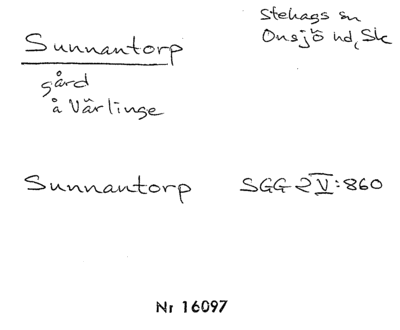 Stehags sn
Onsjö hd, Sk
Sunnantorp
gård
å Värlinge
Sunnantorp SGG 2 V:860
Nr 16097